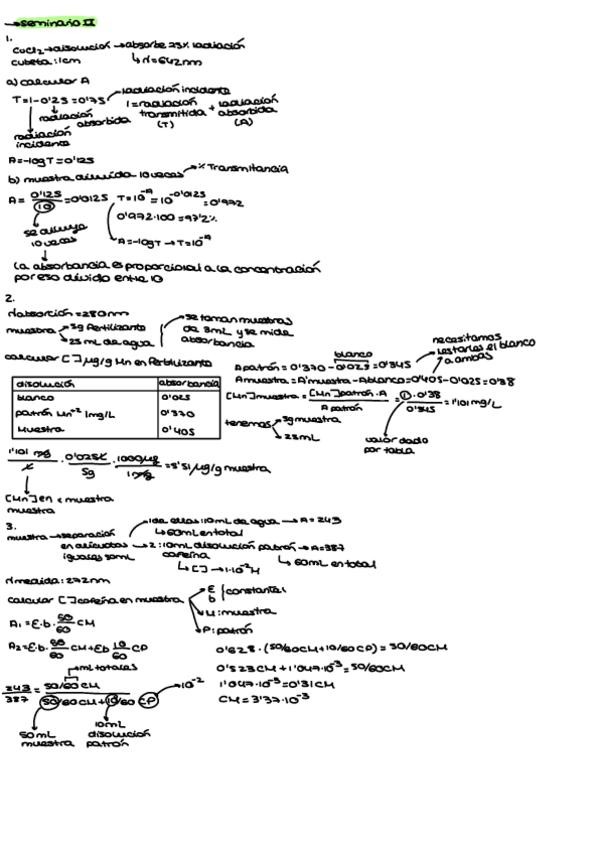 →seminario II
1.
CuCl2→disolución→absorbe 25% radiación
cubeta:1cm
↳λ=642nm
a) calcular A
T=1-0'25=0'75
radiación incidente
1=radiación transmitida (T) + radiación absorbida (A)
radiación absorbida
radiación incidente
A=-logT=0'125
b) muestra diluida 10 veces
% Transmitancia
A= 0'125/10 =0'0125 T=10^-A=10^-0'0125=0'972
0'972·100=97'2%
se diluye 10 veces
A=-logT→T=10^-A
La absorbancia es proporcional a la concentración
por eso divido entre 10
2.
λabsorción=280nm
muestra
5g fertilizante
25 mL de agua
se toman muestras
de 3mL y se mide
absorbancia
calcular [ ] μg/g Mn en fertilizante
disolución absorbancia
blanco 0'025
patrón Mn+2 1mg/L 0'370
Muestra 0'405
blanco
Apatrón=0'370-0'025=0'345
necesitamos
restarles el blanco
a ambas
Amuestra=A'muestra-Ablanco=0'405-0'025=0'38
[Mn]muestra= [Mn]patrón·A / A patrón = 1·0'38 / 0'345 =1'101 mg/L
tenemos
5g muestra
25mL
valor dado
por tabla
1'101 mg/L · 0'025L/5g · 1000μg/1mg =5'51μg/g muestra
[Mn] en
muestra
3.
muestra→separación
en alícuotas
iguales 50mL
1 de ellas:10mL de agua→A=243
↳60mL en total
2:10mL disolución patrón→A=387
cafeína
↳[ ]→1·10^-2M
↳60mL en total
λmedida:272nm
calcular [ ]cafeína en muestra
ε
b
constantes
M:muestra
P:patrón
A1=ε·b·50/60 CM
A2=ε·b·50/60 CM+εb 10/60 CP
mL totales
243/387 = 50/60CM / 50/60CM+10/60 CP
10^-2
50mL
muestra
10mL
disolución
patrón
0'628·(50/60CM+10/60CP)=50/60CM
0'523CM+1'047·10^-3=50/60CM
1'047·10^-3=0'31CM
CM=3'37·10^-3